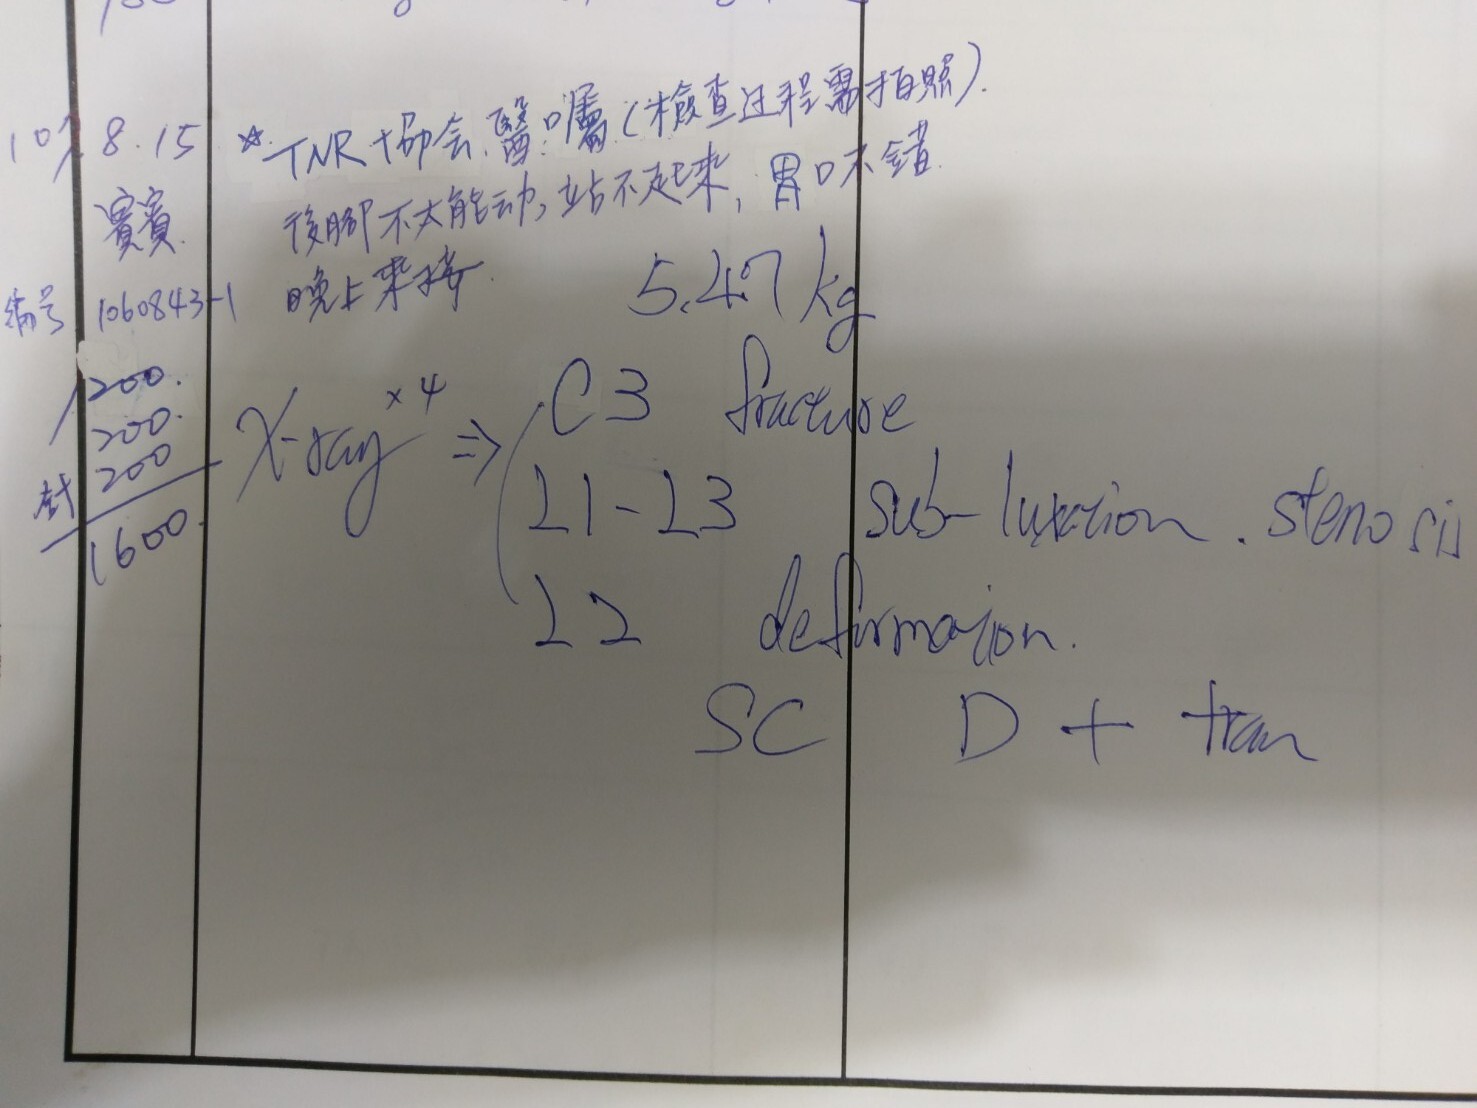 8.15
☆ TNR 協会 醫囑 (檢查过程需拍照).
賓賓
後腳不太能动, 站不起来, 胃口不錯.
晚上来接.
編号 1060843-1
5.47 kg
1200.
200.
針 200
1600.
X-ray ×4 ⇒
C3 fracture
L1-L3 sub-luxation. stenosis
L2 deformation.
SC D + tram